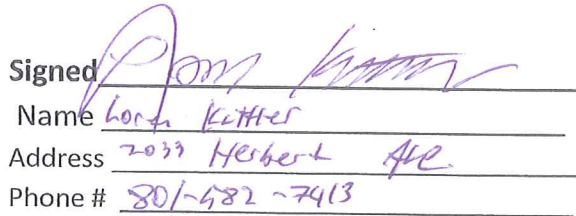 Signed
Name Loren Kittler
Address 2033 Herbert Ave.
Phone # 801-582-7413